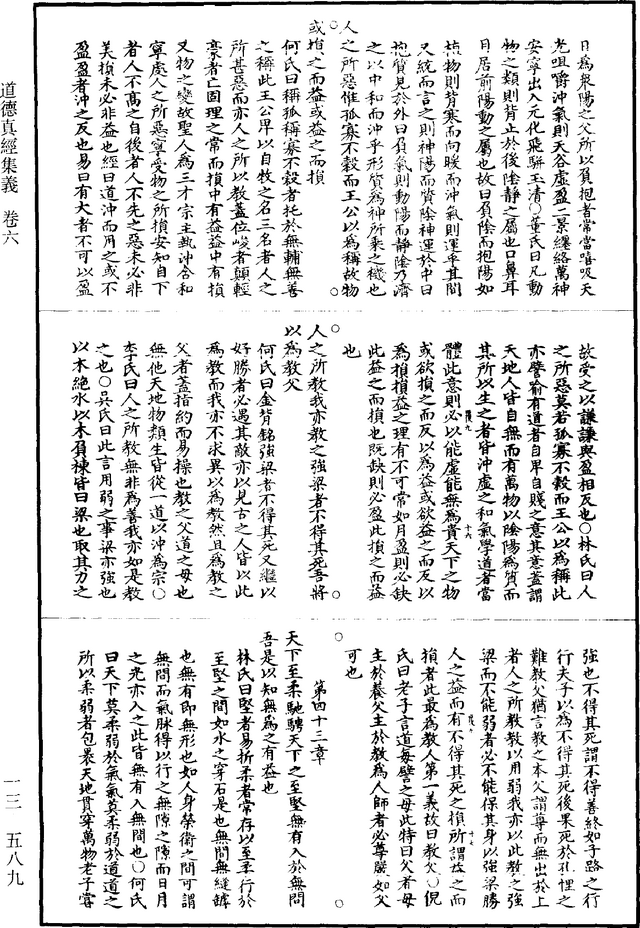 道德真經集義　卷六
日為衆陽之父所以負抱者常當嘻吸天
光咀嚼沖氣則天谷虛盈二景纒絡萬神
安寧出入元化飛騈玉清○董氏曰凡動
物之類則背止於後陰靜之屬也口鼻耳
目居前陽動之屬也故曰負陰而抱陽如
植物則背寒而向暖而沖氣則運乎其間
又統而言之則神陽而質陰神運於中曰
抱質見於外曰負氣則動陽而靜陰乃濟
之以中和而沖乎形質為神所乘之機也
人之所惡惟孤寡不穀而王公以為稱故物
或損之而益或益之而損
何氏曰稱孤稱寡不穀者托於無輔無善
之稱此王公卑以自牧之名三名者人之
所甚惡而亦人之所以教蓋位峻者顛輕
豪者亡固理之常而損中有益益中有損
又物之變故聖人為三才宗主執沖含和
寧處人之所惡寧受物之所損安知自下
者人不高之自後者人不先之惡未必非
美損未必非益也經曰道沖而用之或不
盈盈者沖之反也易曰有大者不可以盈
故受之以謙謙與盈相反也○林氏曰人
之所惡莫若孤寡不穀而王公以為稱此
亦譬喻有道者自卑自賤之意其意蓋謂
天地人皆自無而有萬物以陰陽為質而
其所以生之者皆沖虛之和氣學道者當
體此意則必以能虛能無為貴天下之物
或欲損之而反以為益或欲益之而反以
為損損益之理有不可常如月盈則必缺
此益之而損也既缺則必盈此損之而益
也
人之所教我亦教之強梁者不得其死吾將
以為教父
何氏曰金背銘強梁者不得其死又繼以
好勝者必遇其敵亦以見古之人皆以此
為教而我亦不求異以為教然且為教之
父者蓋指約而易操也教之父道之母也
無他天地物類生皆從一道以沖為宗○
李氏曰人之所教無非為善我亦如是教
之也○吳氏曰此言用弱之事梁亦強也
以木絶水以木負棟皆曰梁也取其力之
強也不得其死謂不得善終如子路之行
行夫子以為不得其死後果死於孔悝之
難教父猶言教之本父謂尊而無出於上
者人之所教教以用弱我亦以此教之強
梁而不能弱者必不能保其身以強梁勝
人之益而有不得其死之損所謂益之而
損者此最為教人第一義故曰教父○倪
氏曰老子言道每譬之母此特曰父者母
主於養父主於教為人師者必尊嚴如父
可也
第四十三章
天下至柔馳騁天下之至堅無有入於無間
吾是以知無為之有益也
林氏曰堅者易折柔者常存以至柔行於
至堅之間如水之穿石是也無間無縫罅
也無有即無形也如人身榮衛之間可謂
無間而氣脉得以行之無隙之隙而日月
之光亦入之此皆無有入無間也○何氏
曰天下莫柔弱於氣氣莫柔弱於道道之
所以柔弱者包裹天地貫穿萬物老子嘗
一三　五八九